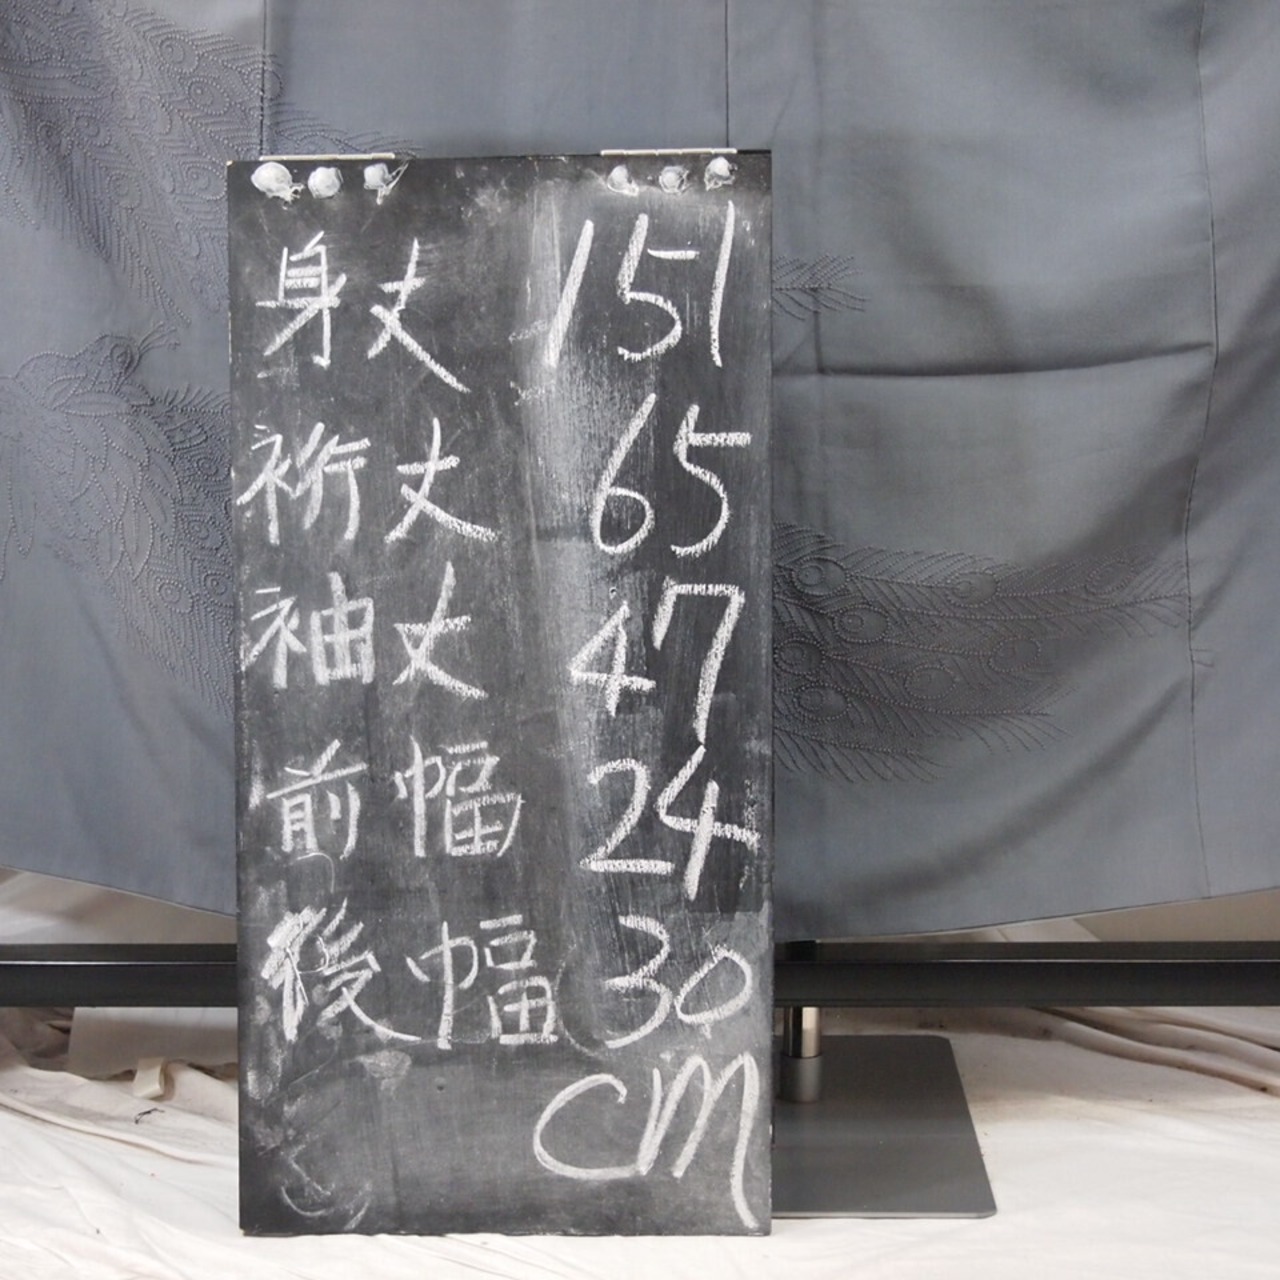 身丈 151
裄丈 65
袖丈 47
前幅 24
後幅 30
cm